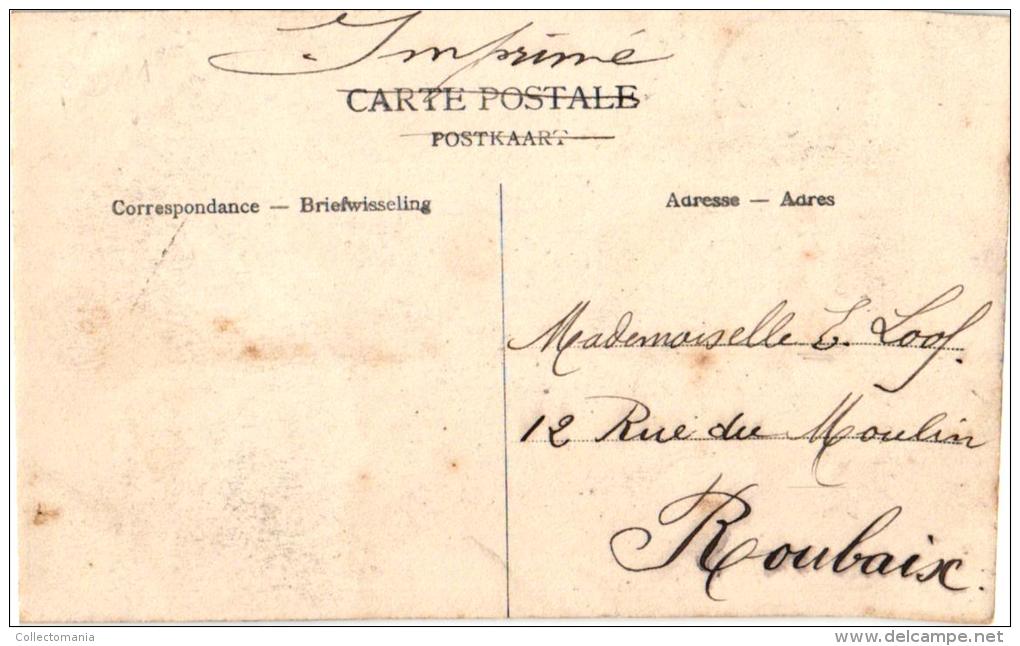 Imprimé
CARTE POSTALE
POSTKAART
Correspondance — Briefwisseling
Adresse — Adres
Mademoiselle E. Loof.
12 Rue du Moulin
Roubaix.
Collectomania
www.delcampe.net